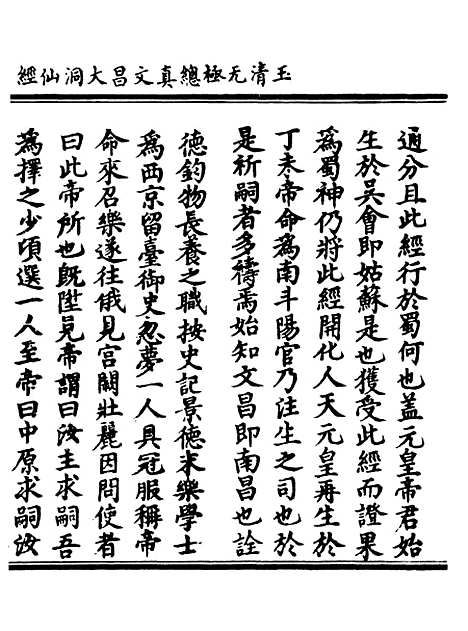 玉清无極總真文昌大洞仙經
通分且此經行於蜀何也蓋元皇帝君始
生於吳會即姑蘇是也獲受此經而證果
為蜀神仍將此經開化人天元皇再生於
丁未帝命為南斗陽官乃注生之司也於
是祈嗣者多禱焉始知文昌即南昌也詮
德鈞物長養之職按史記景德末樂學士
為西京留臺御史忽夢一人具冠服稱帝
命來召樂遂往俄見宮闕壯麗因問使者
曰此帝所也既陞見帝謂曰汝主求嗣吾
為擇之少頃選一人至帝曰中原求嗣汝